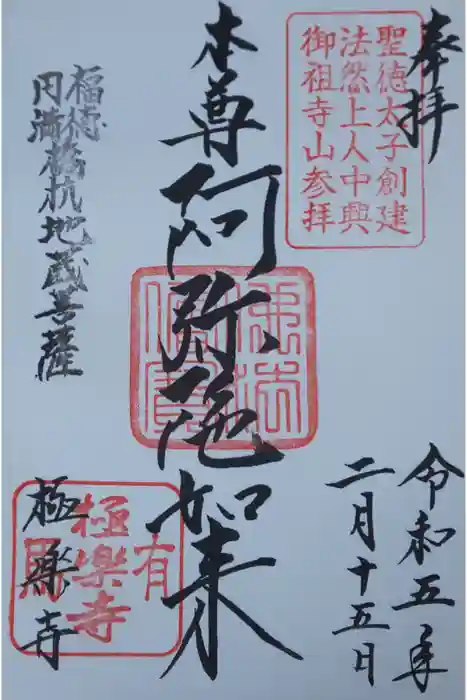 奉拝
聖徳太子創建
法然上人中興
御祖寺山参拝
令和五年
二月十五日
本尊阿弥陀如来
佛法僧寳
福徳
円満
橋杭地蔵菩薩
極楽寺
極樂寺